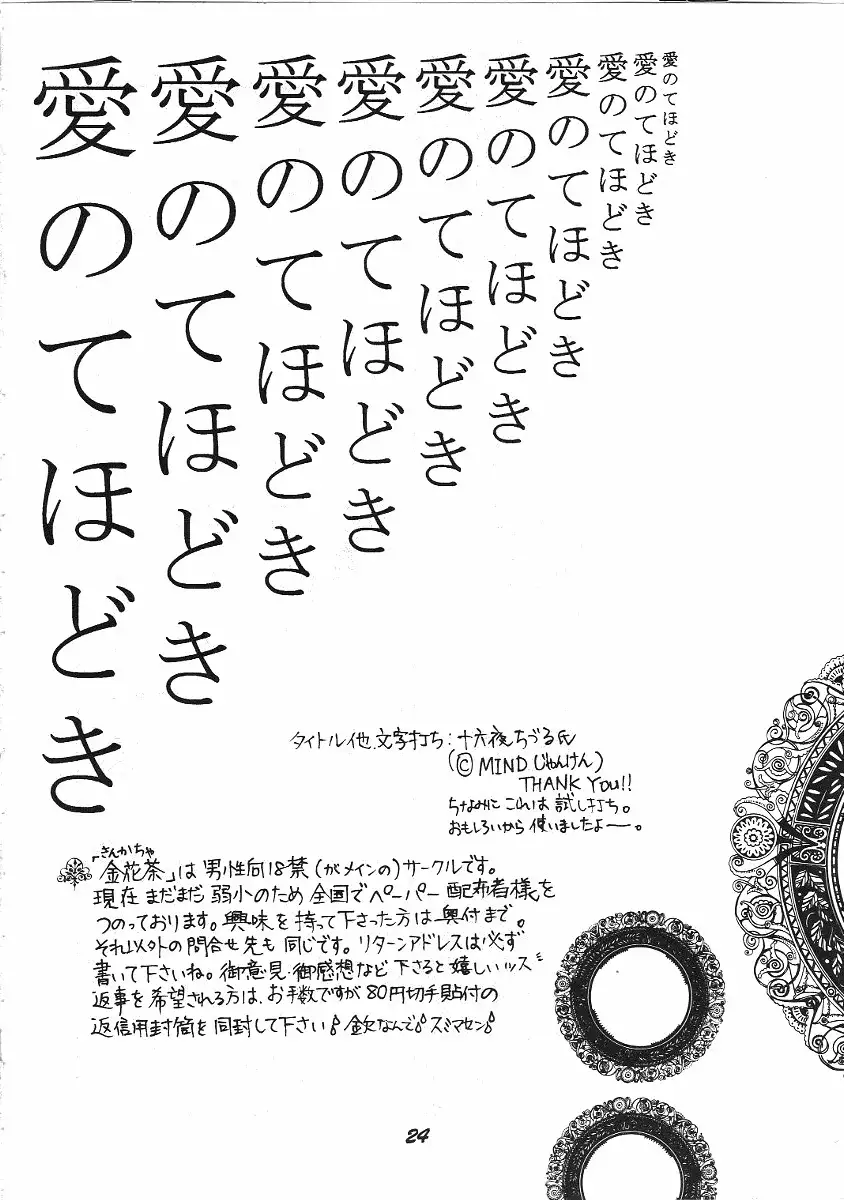 愛のてほどき
愛のてほどき
愛のてほどき
愛のてほどき
愛のてほどき
愛のてほどき
愛のてほどき
愛のてほどき
愛のてほどき
愛のてほどき
タイトル他、文字打ち：十六夜ちづる氏
（©MINDじゃんけん）
THANK You!!
ちなみに これは 試し打ち。
おもしろいから 使いましたよー。
きんかちゃ
「金花茶」は 男性向18禁（がメインの）サークルです。
現在 まだまだ 弱小のため 全国でペーパー 配布者様を
つのっております。興味を 持って下さった方は 奥付まで。
それ以外の 問合せ先も 同じです。リターンアドレスは必ず
書いて下さいね。御意見・御感想など 下さると 嬉しいッス
返事を希望される方は、お手数ですが 80円切手貼付の
返信用封筒を 同封して下さい 金欠なんで スミマセン
24